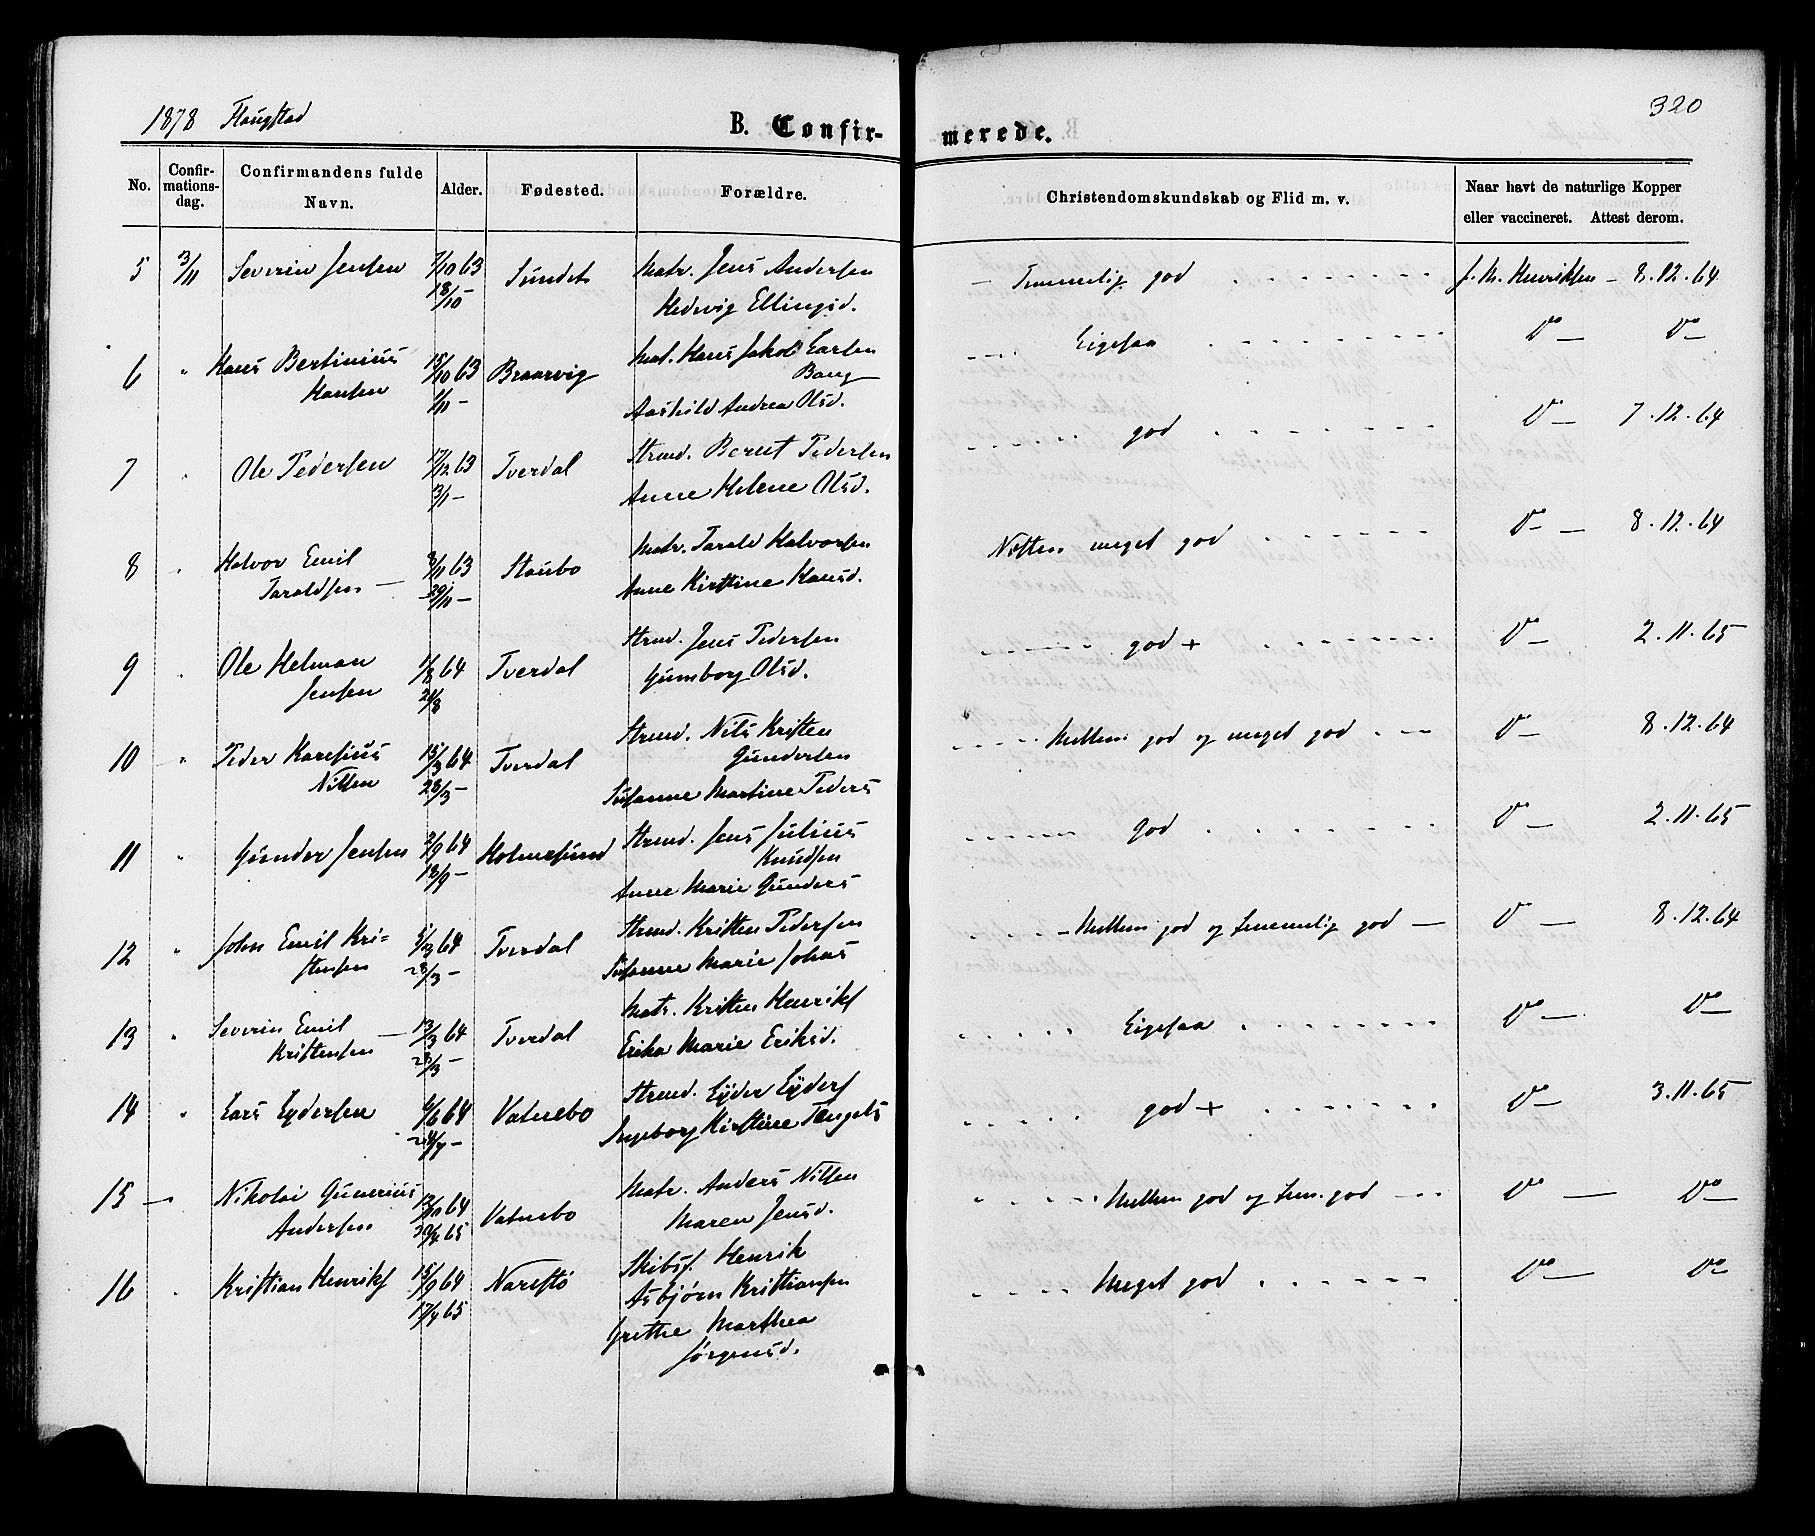 1878 Flaugstad
320
B. Confir-
merede.
No.
Confir-
mations-
dag.
Confirmandens fulde
Navn.
Alder.
Fødested.
Forældre.
Christendomskundskab og Flid m. v.
Naar havt de naturlige Kopper
eller vaccineret. Attest derom.
5 3/11 Severin Jensen 7/10 63 Sundet Matr. Jens Andersen Temmelig god J. M. Henriksen 8.12.64
18/10 – Hedvig Ellingsd.
6 " Hans Bertinius 15/10 63 Braarvig Mat. Hans Jakob Larsen Ligesaa Do Do
Hansen 1/11 – Bang
Aashild Andrea Olsd.
7 " Ole Pedersen 17/12 63 Tverdal Strmd. Bernt Pedersen god Do 7.12.64
3/1 – Anne Helene Olsd.
8 " Halvor Emil 8/11 63 Staubo Matr. Tarald Halvorsen Næsten meget god Do 8.12.64
Taraldsen 29/11 – Anne Kirstine Hansd.
9 " Ole Helman 1/8 64 Tverdal Strmd. Jens Pedersen god + Do 2.11.65
Jensen 21/8 Gunborg Olsd.
10 " Peder Karelius 15/3 64 Tverdal Strmd. Nils Kristen Mellem god og meget god Do 8.12.64
Nilsen 28/3 – Gundersen
Susanne Martine Peders
11 " Gunder Jensen 2/9 64 Holmesund Strmd. Jens Julius god Do 2.11.65
18/9 – Knudsen
Anne Marie Gunders
12 " John Emil Kri- 5/3 64 Tverdal Strmd. Kristen Pedersen Mellem god og temmelig god Do 8.12.64
stensen 28/3 – Susanne Marie Johns
13 " Severin Emil 13/3 64 Tverdal Matr. Kristen Henriks Ligesaa Do Do
Kristensen 28/3 – Erika Marie Eriksd.
14 " Lars Eydersen 6/6 64 Vatnebo Strmd. Eyder Eyders god + Do 3.11.65
24/7 – Ingeborg Kirstine Tengels
15 " Nikolai Gunerius 12/10 64 Vatnebo Matr. Anders Nilsen Mellem god og tem. god Do Do
Andersen 30/4 65 Maren Jensd.
16 " Kristian Henriks 15/9 64 Narestø Skibsf. Henrik Meget god Do Do
17/4 65 Asbjørn Kristiansen
Grethe Marthea
Jørgensd.